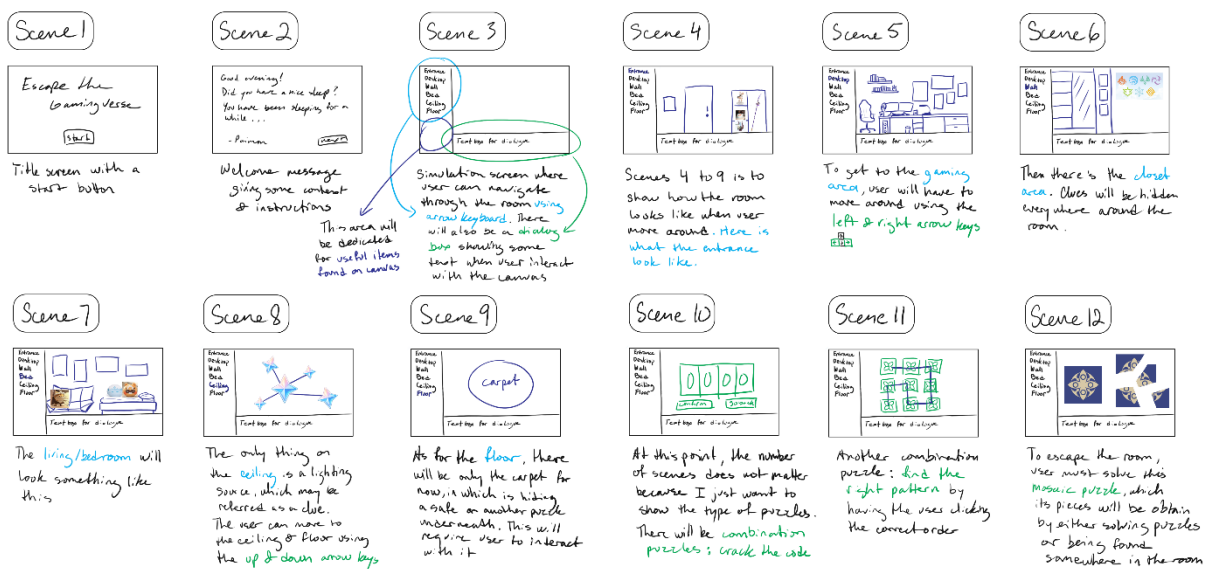 Scene 1
Escape the
Gamingverse
Start
Title screen with a
start button
Scene 2
Good evening!
Did you have a nice sleep?
You have been sleeping for a
while...
- Paimon
Welcome message
giving some context
& instructions
Scene 3
Entrance
Desktop
Wall
Bed
Ceiling
Floor
Text box for dialogue
This area will
be dedicated
for useful items
found on canvas
Simulation screen where
user can navigate
through the room using
arrow keyboard. There
will also be a dialog
box showing some
text when user interact
with the canvas
Scene 4
Entrance
Desktop
Wall
Bed
Ceiling
Floor
Text box for dialogue
Scenes 4 to 9 is to
show how the room
looks like when user
move around. Here is
what the entrance
look like.
Scene 5
Entrance
Desktop
Wall
Bed
Ceiling
Floor
Text box for dialogue
To get to the gaming
area, user will have to
move around using the
left & right arrow keys
Scene 6
Entrance
Desktop
Wall
Bed
Ceiling
Floor
Text box for dialogue
Then there's the closet
area. Clues will be hidden
everywhere around the
room.
Scene 7
Entrance
Desktop
Wall
Bed
Ceiling
Floor
Text box for dialogue
The living/bedroom will
look something like
this
Scene 8
Entrance
Desktop
Wall
Bed
Ceiling
Floor
Text box for dialogue
The only thing on
the ceiling is a lighting
source, which may be
referred as a clue.
The user can move to
the ceiling & floor using
the up & down arrow keys
Scene 9
Entrance
Desktop
Wall
Bed
Ceiling
Floor
carpet
Text box for dialogue
As for the floor, there
will be only the carpet for
now, in which is hiding
a safe or another puzzle
underneath. This will
require user to interact
with it
Scene 10
Entrance
Desktop
Wall
Bed
Ceiling
Floor
0 0 0 0
Text box for dialogue
At this point, the number
of scenes does not matter
because I just want to
show the type of puzzles.
There will be combination
puzzles: crack the code
Scene 11
Entrance
Desktop
Wall
Bed
Ceiling
Floor
Text box for dialogue
Another combination
puzzle: find the
right pattern by
having the user clicking
the correct order
Scene 12
Entrance
Desktop
Wall
Bed
Ceiling
Floor
Text box for dialogue
To escape the room,
user must solve this
mosaic puzzle, which
its pieces will be obtain
by either solving puzzles
or being found
somewhere in the room